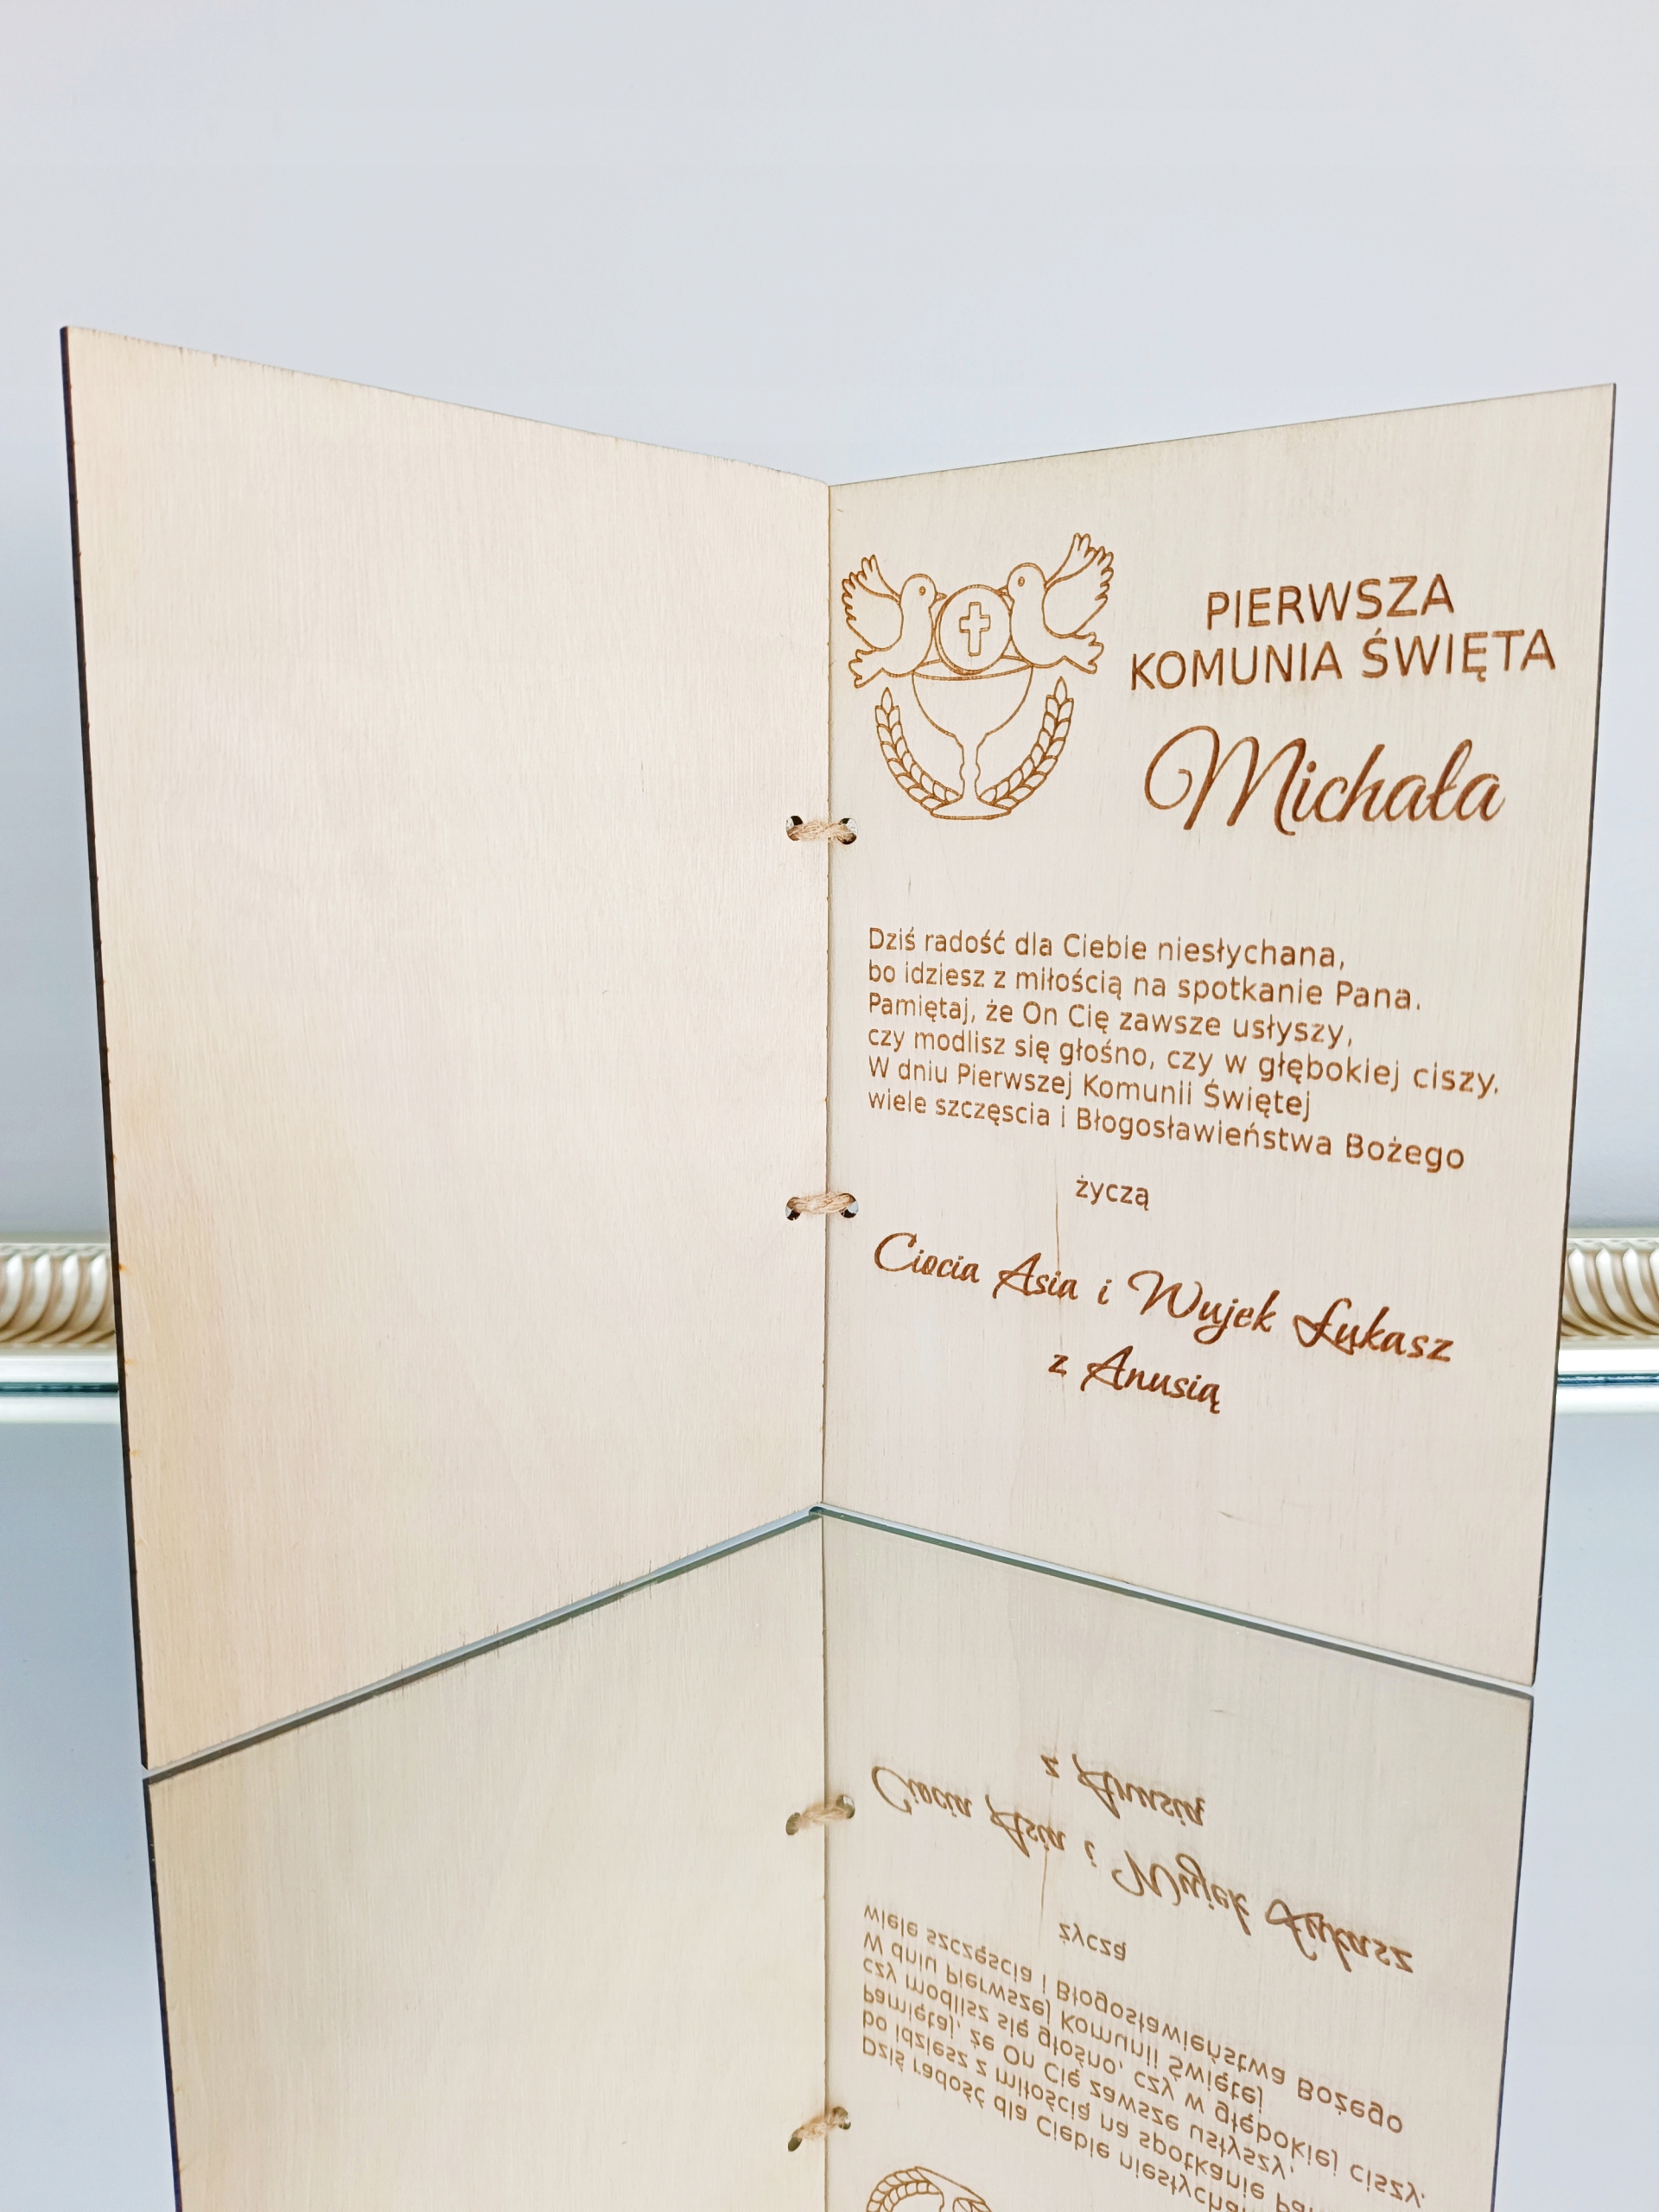 PIERWSZA
KOMUNIA ŚWIĘTA
Michała
Dziś radość dla Ciebie niesłychana,
bo idziesz z miłością na spotkanie Pana.
Pamiętaj, że On Cię zawsze usłyszy,
czy modlisz się głośno, czy w głębokiej ciszy.
W dniu Pierwszej Komunii Świętej
wiele szczęscia i Błogosławieństwa Bożego
życzą
Ciocia Asia i Wujek Łukasz
z Anusią